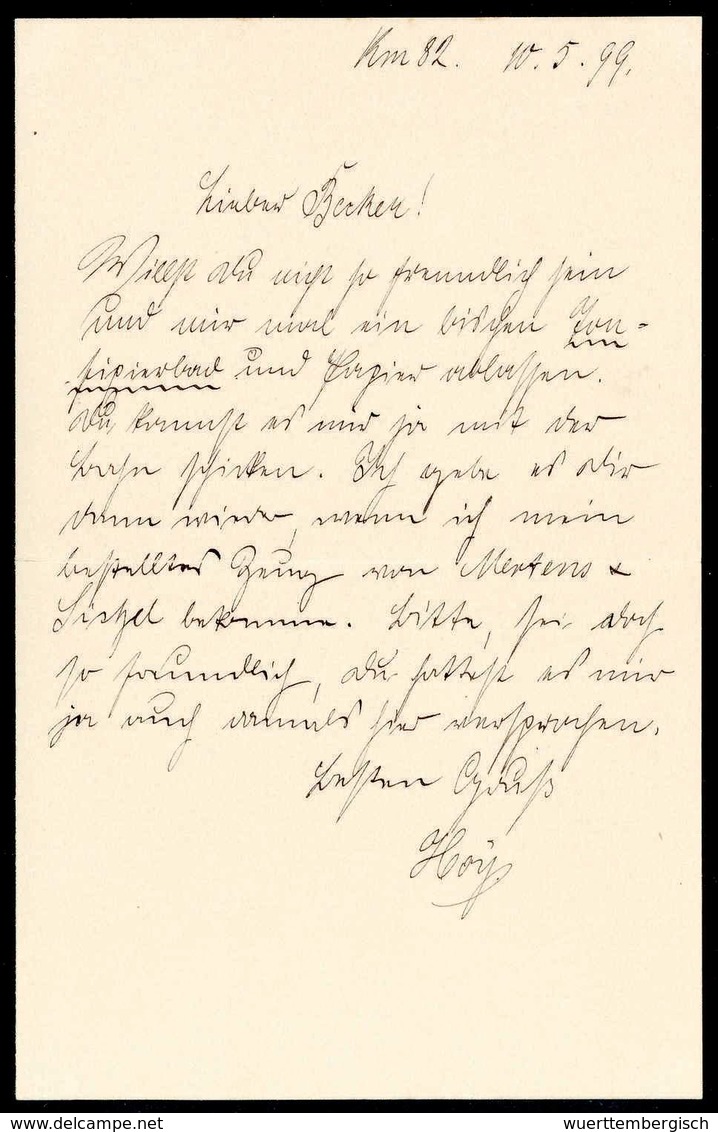 Km 82. 10. 5. 99.
Lieber Becker!
Willst du nicht so freundlich sein
und mir mal ein bischen Ton-
fixierbad und Papier ablassen.
Du kannst es mir ja mit der
Bahn schicken. Ich gebe es dir
dann wieder, wenn ich mein
bestelltes Zeug von Mertens &
Sichel bekomme. Bitte, sei doch
so freundlich, du hattest es mir
ja auch damals hier versprochen.
Besten Gruß
Hoÿ.
delcampe.net
wuerttembergisch